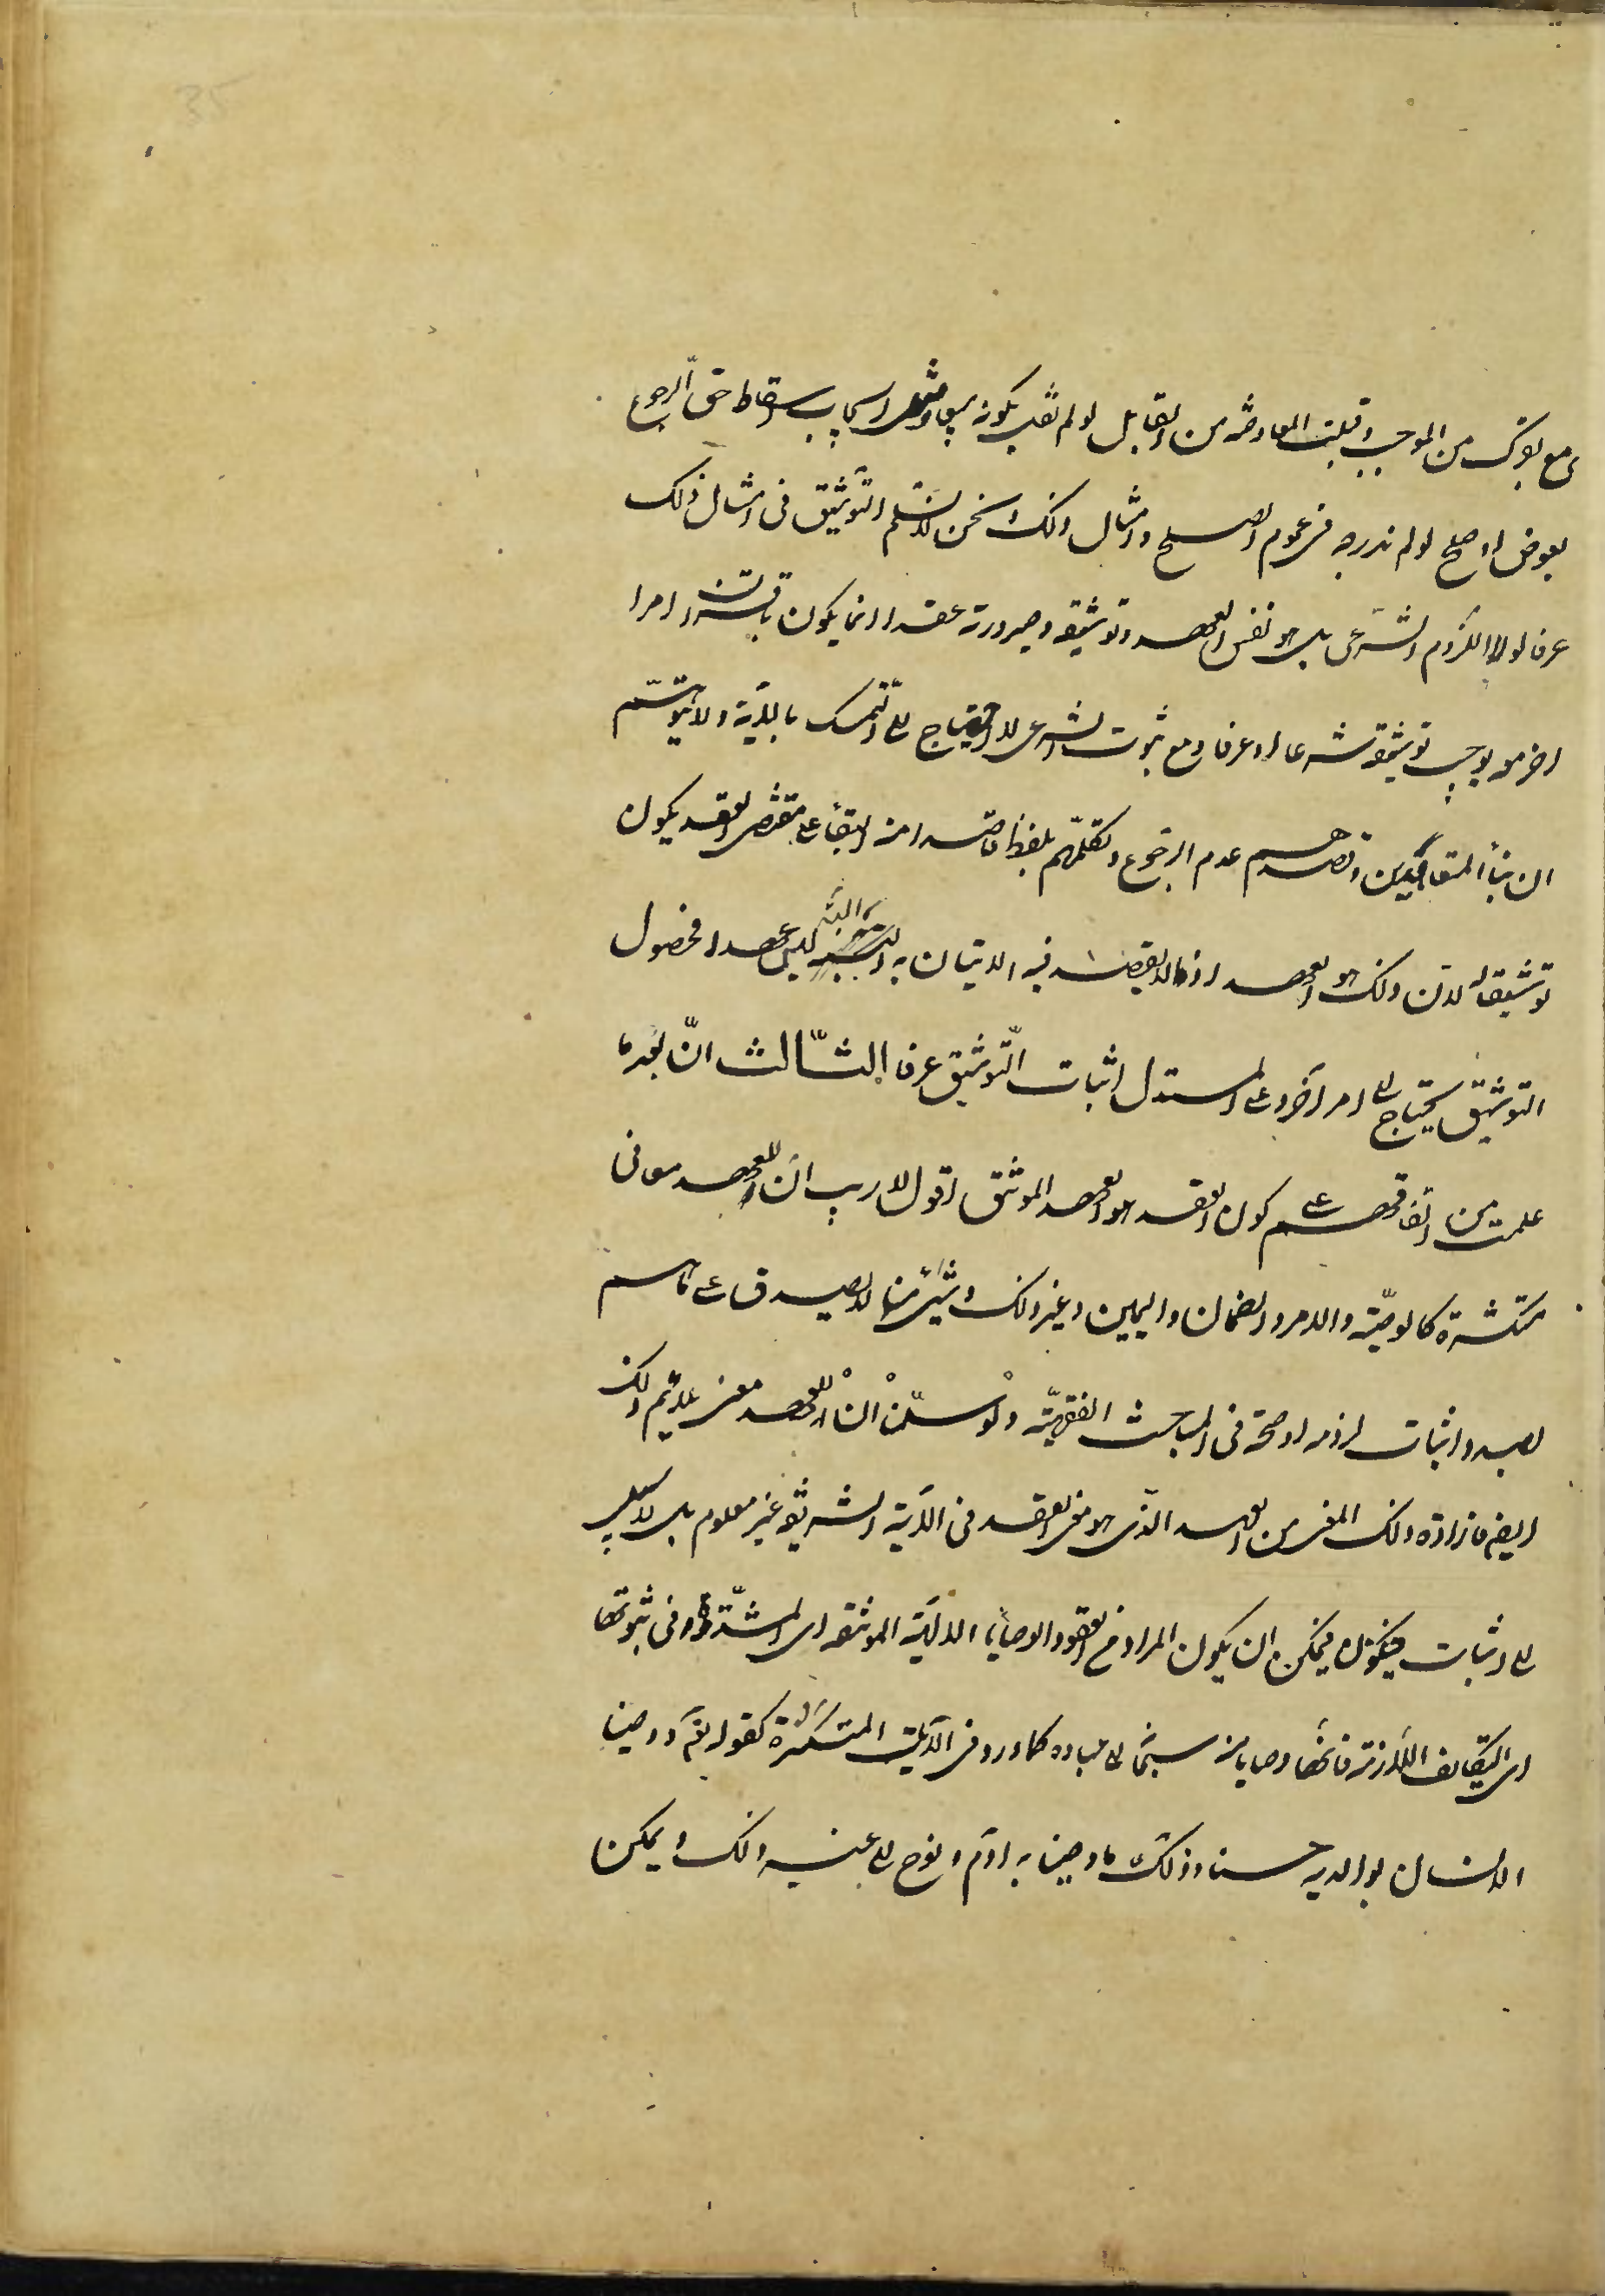 ى مع بعوتك من الموجب و قبلت المعاوضه من القابل لو لم نقل بكونه بيعا و مثل ايجاب اسقاط حق الرجوع
بعوض او صلح لو لم ندرجه فى عموم الصلح و امثال ذلك و نحن لا نسلم التوثيق فى امثال ذلك
عرفا لولا اللزوم الشرعى بل هو نفس العهد و توثيقه و صيرورته عقدا انما يكون باقترانه امرا
اخر مما يوجب توثيقه شرعا او عرفا و مع ثبوت الشرعى لا احتياج الى التمسك بالاية و لا يتوهم
ان بناء المتعاقدين و قصدهم عدم الرجوع و تكلمهم بلفظ قاصدا منه البقاء على مقتضى العقد يكون
توثيقا له لان ذلك هو العهد اذ ما لا يقصد فيه الاتيان به البتة ليس عهدا فحصول
التوثيق يحتاج الى امر اخر و على المستدل اثبات التوثيق عرفا الثالث ان بعد ما
علمت من اتفاقهم على كون العقد هو العهد الموثق اقول لا ريب ان للعهد معانى
متكثرة كالوصية و الامر و الضمان و اليمين و غير ذلك و شئ منها لا يصدق على ما هم
بصدد اثبات لزومه او صحته فى المباحث الفقهية و لو سلمنا ان للعهد معنى يلايم ذلك
ايضا فارادة ذلك المعنى من العهد الذى هو معنى العقد فى الاية الشريفة غير معلوم بل لا سبيل
الى اثباته فنقول يمكن ان يكون المراد من العقود الوصايا الالهية الموثقه اى المشددة فى ثبوتها
اى التكاليف اللازمة فانها وصايا منه سبحانه الى عباده كما ورد فى الايات المتكثرة كقوله تعالى و وصينا
الانسان بوالديه حسنا و ذلك ما وصينا به ادم و نوح الى غير ذلك و يمكن